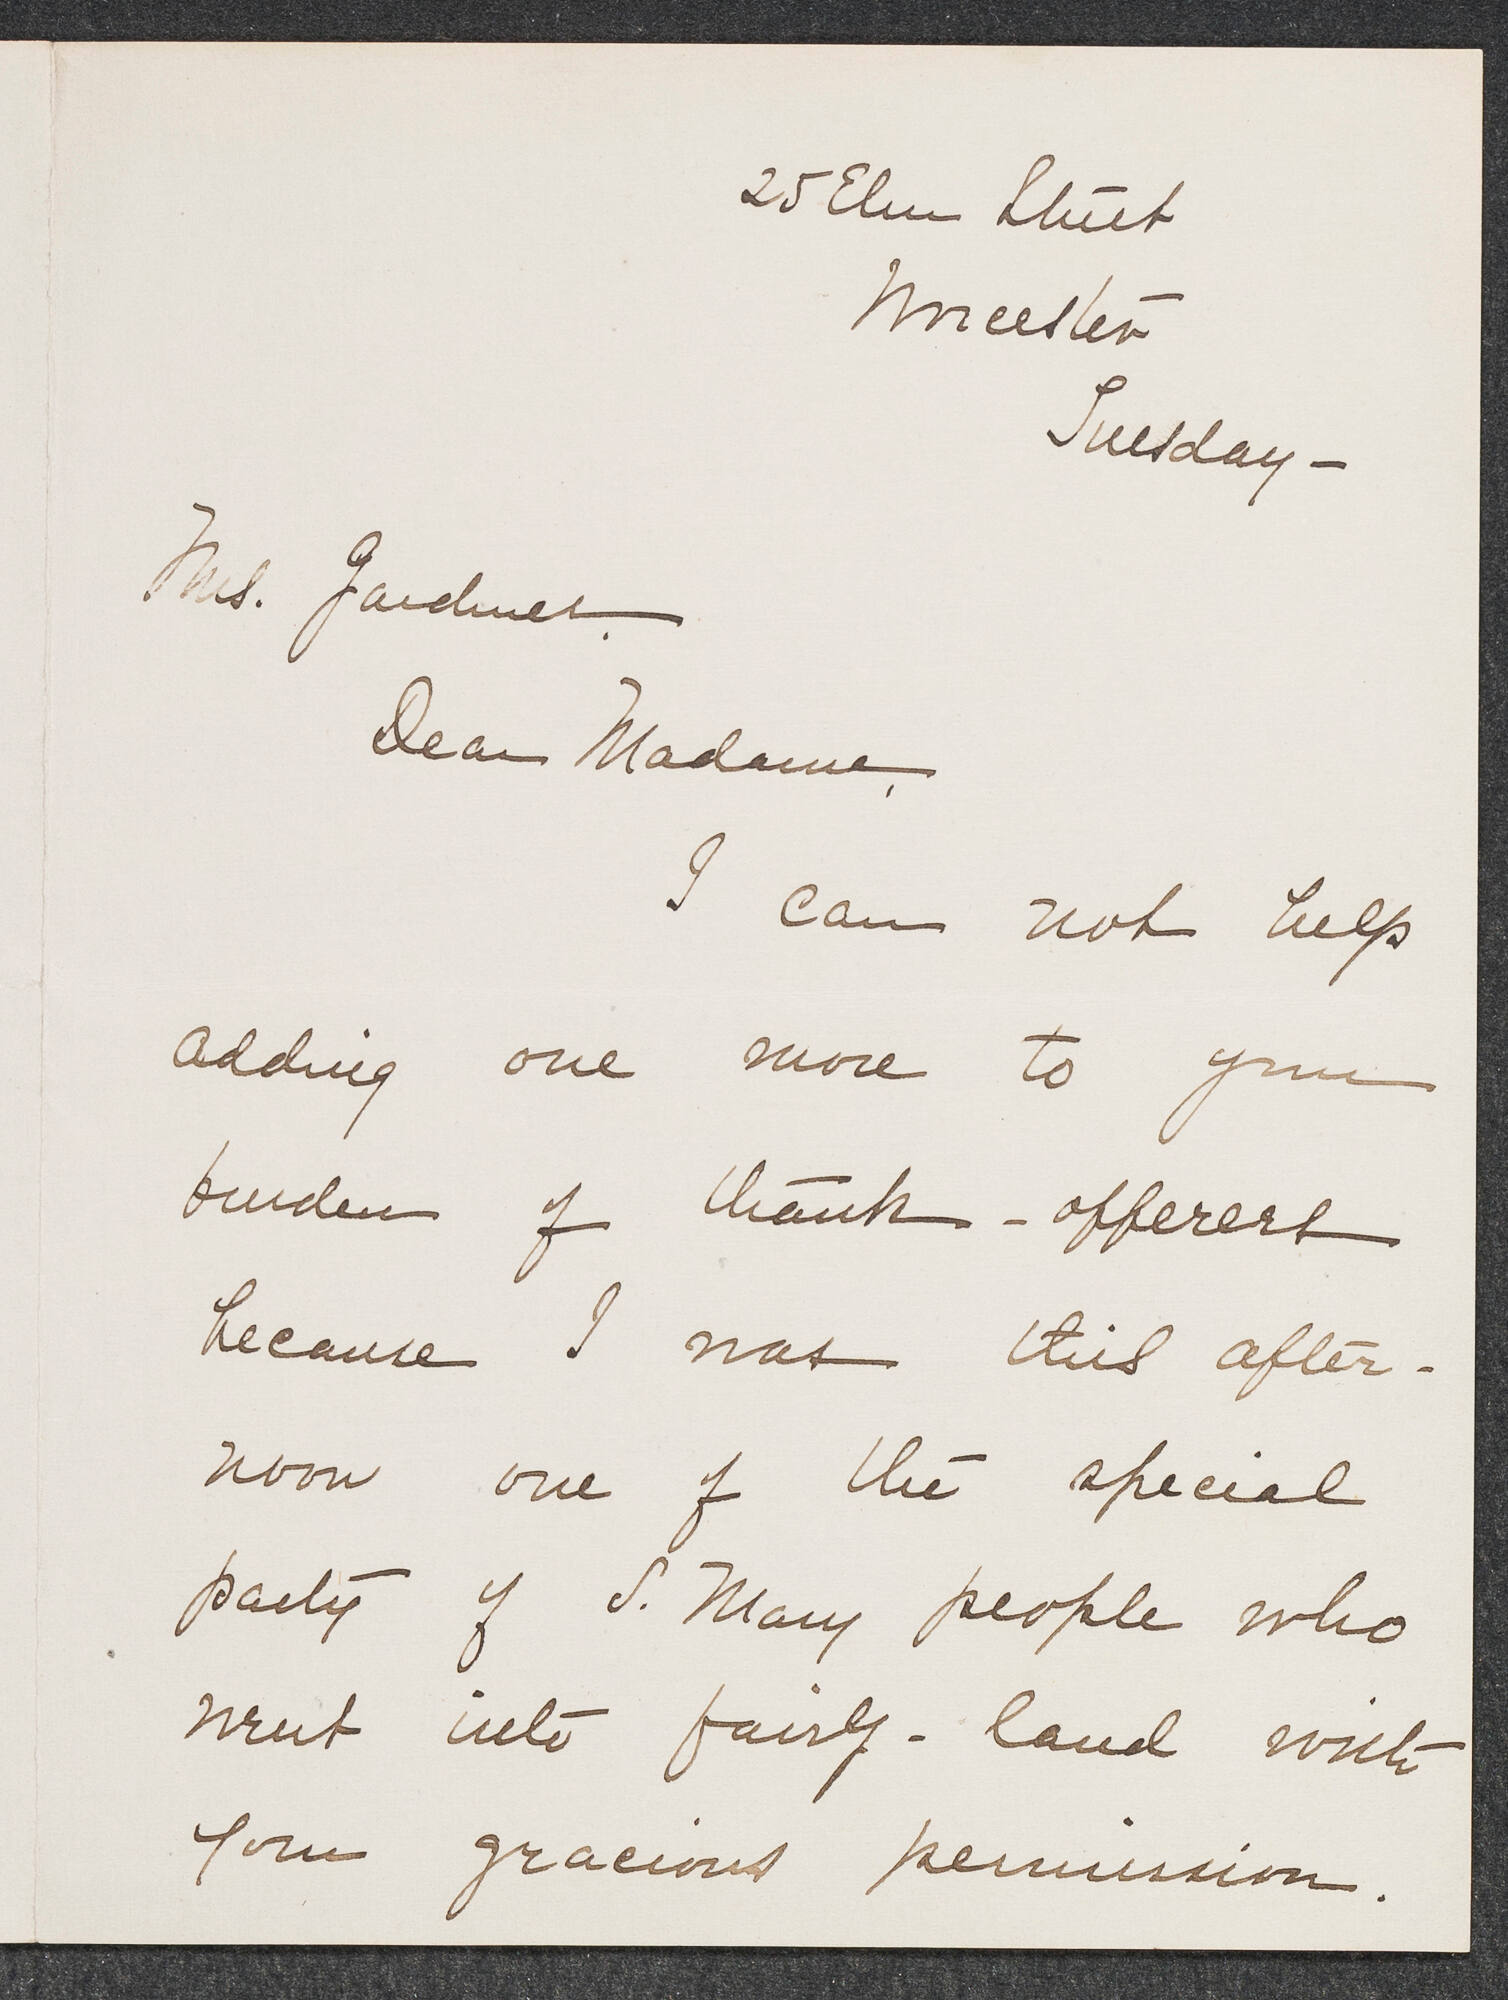 25 Elm Street
Worcester
Tuesday –
Mrs. Gardner.
Dear Madame,
I can not help
adding one more to your
burden of thank-offerers
because I was this after-
noon one of the special
party of S. Mary people who
went into fairy-land with
your gracious permission.